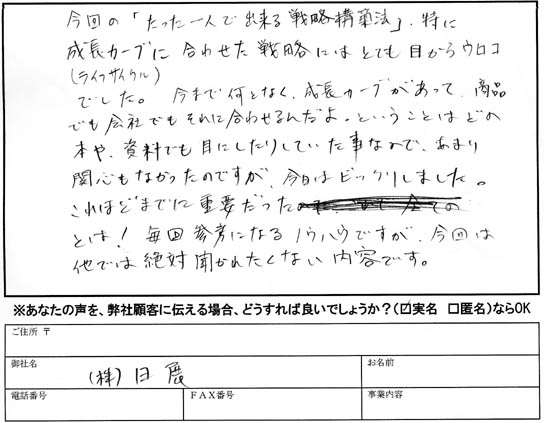 今回の「たった一人で出来る戦略構築法」、特に
成長カーブに合わせた戦略にはとても目からウロコ
(ライフサイクル)
でした。今まで何となく、成長カーブがあって、商品
でも会社でもそれに合わせるんだよ。ということはどの
本や、資料でも目にしたりしていた事なので、あまり
関心もなかったのですが、今日はビックリしました。
これほどまでに重要だった
とは!毎回参考になるノウハウですが、今回は
他では絶対聞かれたくない内容です。
※あなたの声を、弊社顧客に伝える場合、どうすれば良いでしょうか?(☑実名 □匿名)ならOK
ご住所 〒
御社名 (株)日展 お名前
電話番号 FAX番号 事業内容